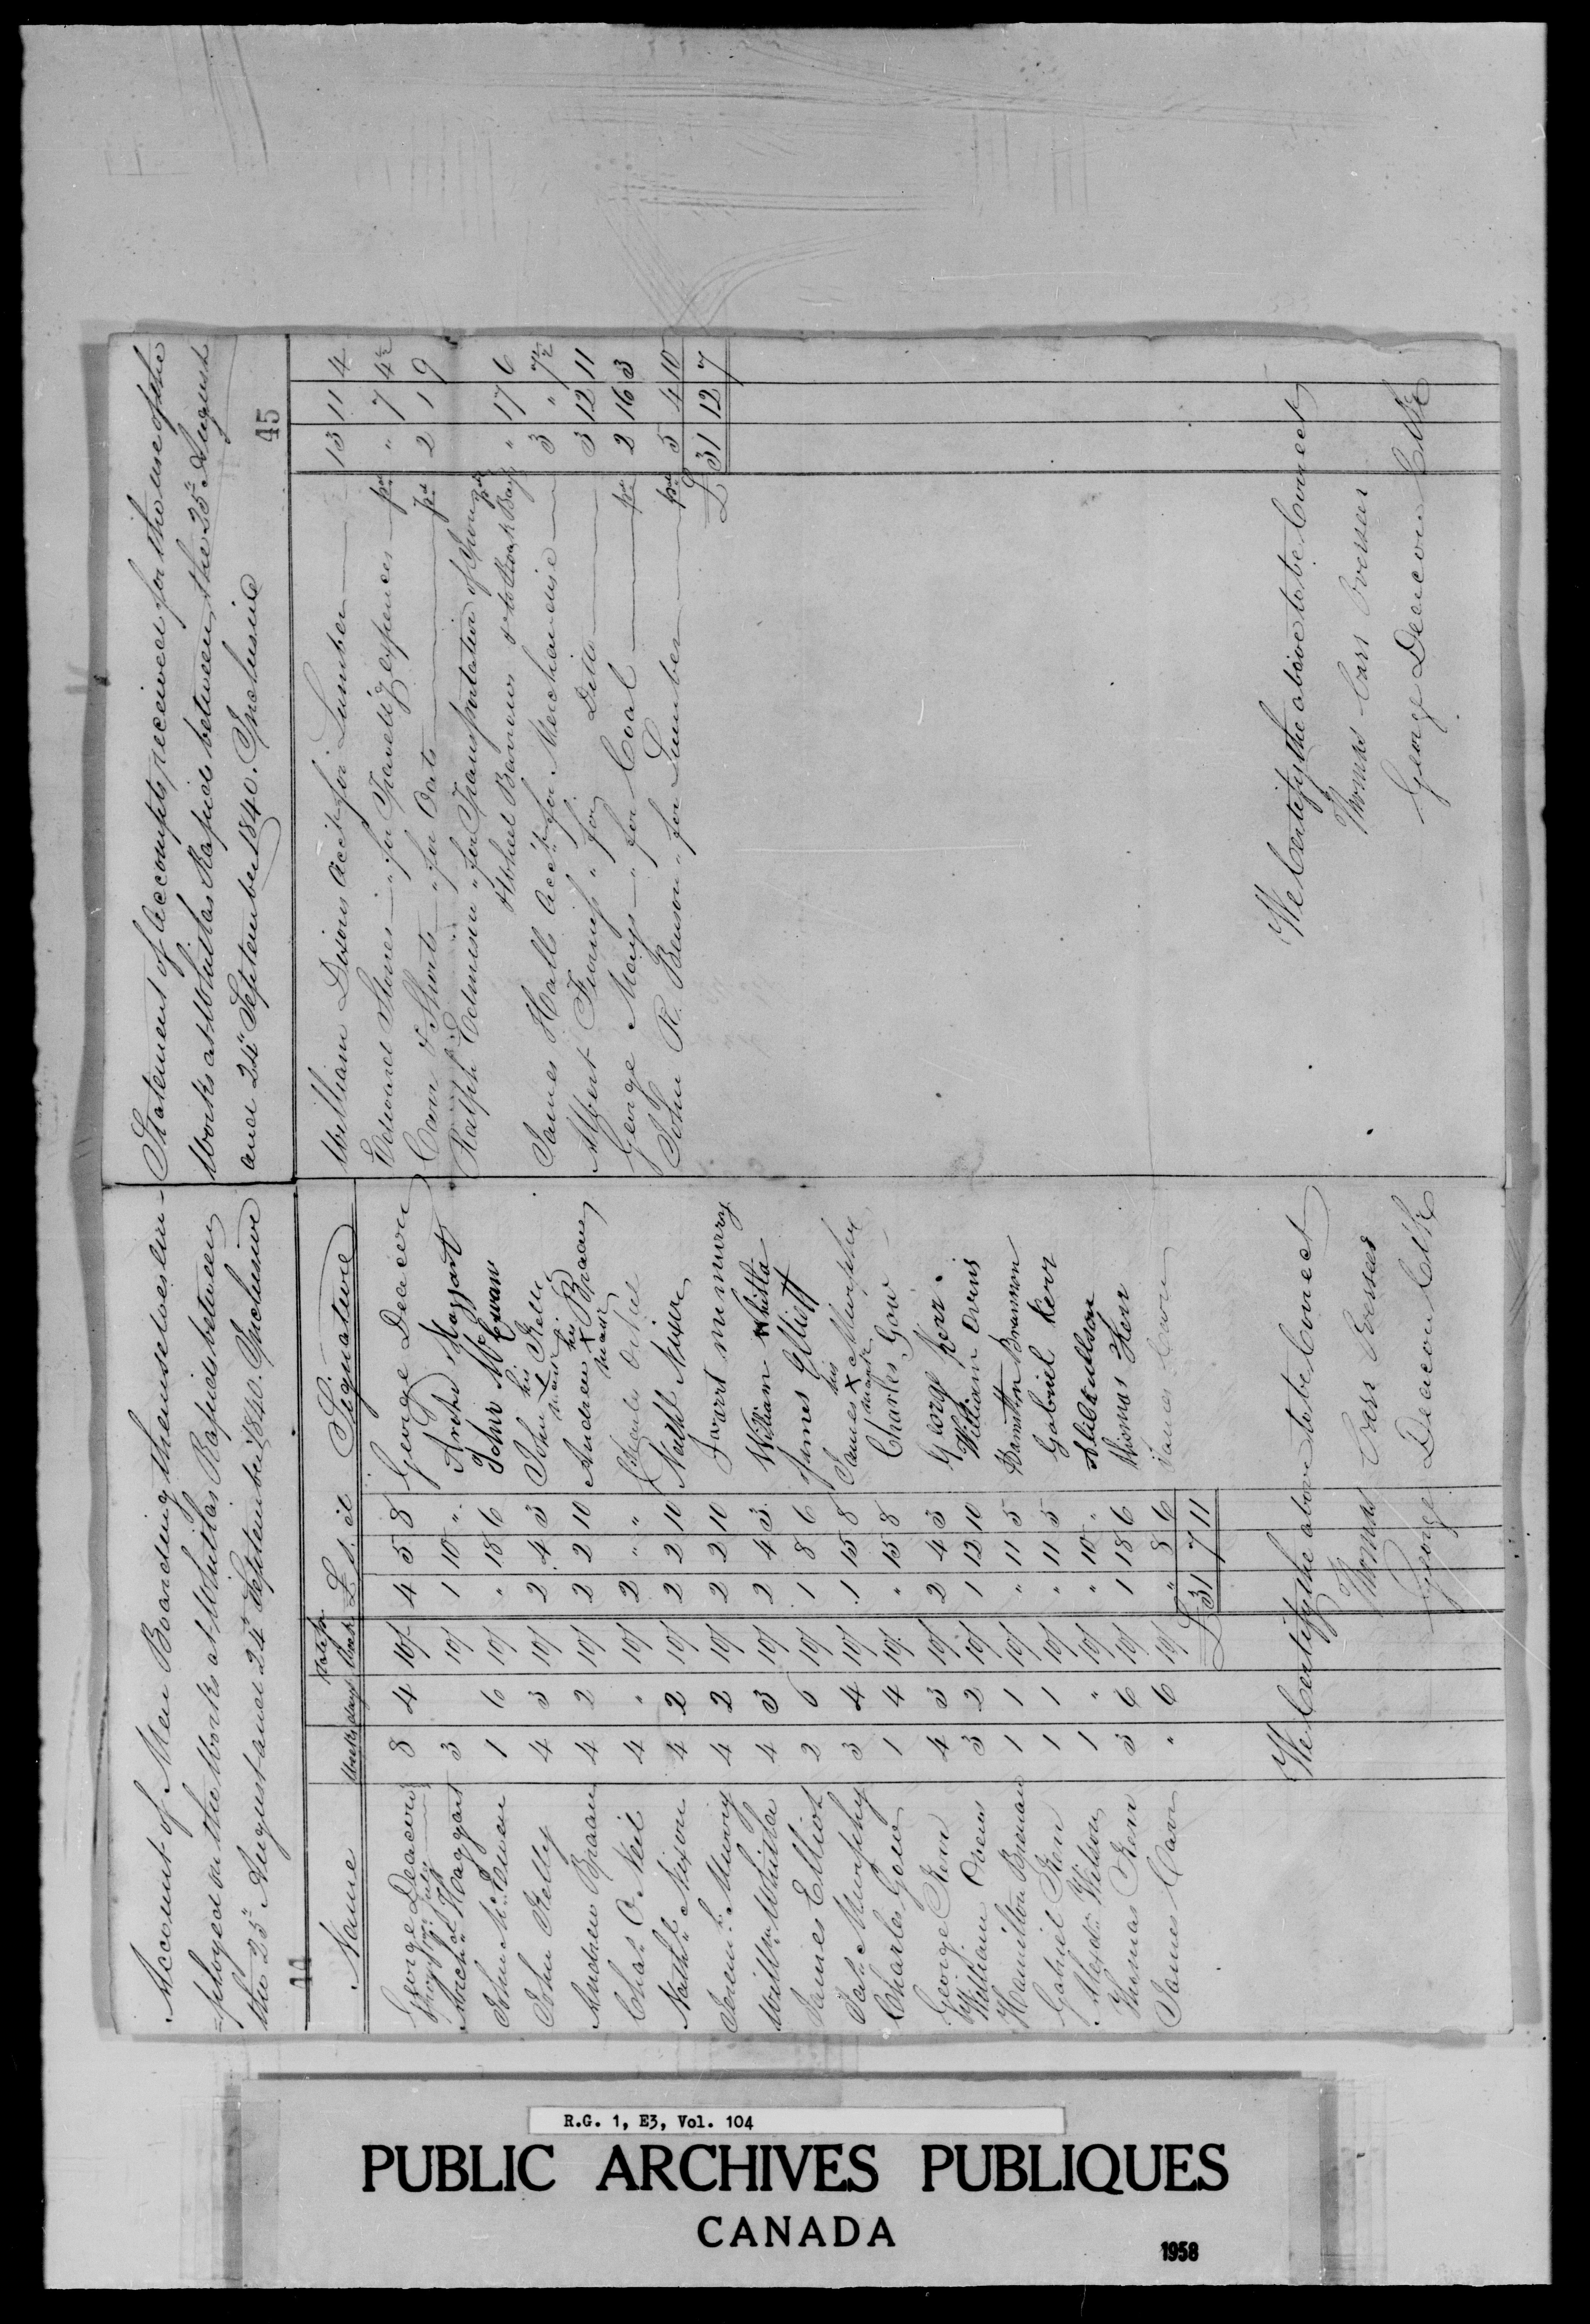 Account of Men Boarding themselves em-
=ployed on the Works at Whitlas Rapids between
the 25th August and 24th September 1840. Inclusive
44
Name Weeks days Rate pr Week £ s. d. Signature
George Deacon 8 4 10/ 4 5 8 George Deacon
Archd. Haggart 3 10/ 1 10 " Archd Haggart
John McEwen 1 6 10/ " 18 6 John McEwan
John Kelly 4 3 10/ 2 4 3 John his X mark Kelly
Andrew Braan 4 2 10/ 2 2 10 Andrew his X mark Braan
Chas. O Neil 4 " 10/ 2 " "
Nathl. Nixon 4 2 10/ 2 2 10 Nathl Nixon
Jerem.h Murry 4 2 10/ 2 2 10 murray
Willm Whitla 4 3 10/ 2 4 3 William Whitla
James Elliot 2 6 10/ 1 8 6 James Elliott
Jas. Murphy 3 4 10/ 1 15 8 James his X mark Murphy
Charles Gow 1 4 10/ " 15 8 Charles Gow
George Kerr 4 3 10/ 2 4 3 George Kerr.
William Ovens 3 2 10/ 1 12 10 William Ovins
Hamilton Brenan 1 1 10/ " 11 5 Hamilton Brannon
Gabriel Kerr 1 1 10/ " 11 5 Gabriel Kerr
Alexdr. Wilson 1 " 10/ " 10 "
Thomas Kerr 3 6 10/ 1 18 6 Thomas Kerr
James Carr " 6 10/ " 8 6 James Carr
£ 31 7 11
We Certify the above to be Correct
Thomas Carr Overseer
George Deacon Clk
Statement of Accompts received for the use of the
Works at Whitlas Rapids between the 25th August
and 24th September 1840. Inclusive
45
William Dixons Acct. for Lumber 13 11 4
Edward Stones " for Travellg expences pd " 7 4½
Carr & Shorts " for Oats pd 2 1 9
Ralph Edmison " for Transportation of Iron
Wheel Barrows & to Back Bay pd " 17 6
James Hall Acct. for Merchandise 3 " 7½
Albert Furniss " for Ditto 3 12 11
George Mays " for Coal pd 2 16 3
John R. Benson " for Lumber pd 5 4 10
£ 31 12 7
We Certify the above to be Correct
Thomas Carr Overseer
George Deacon Clk
R.G. 1, E3, Vol. 104
PUBLIC ARCHIVES PUBLIQUES
CANADA
1958